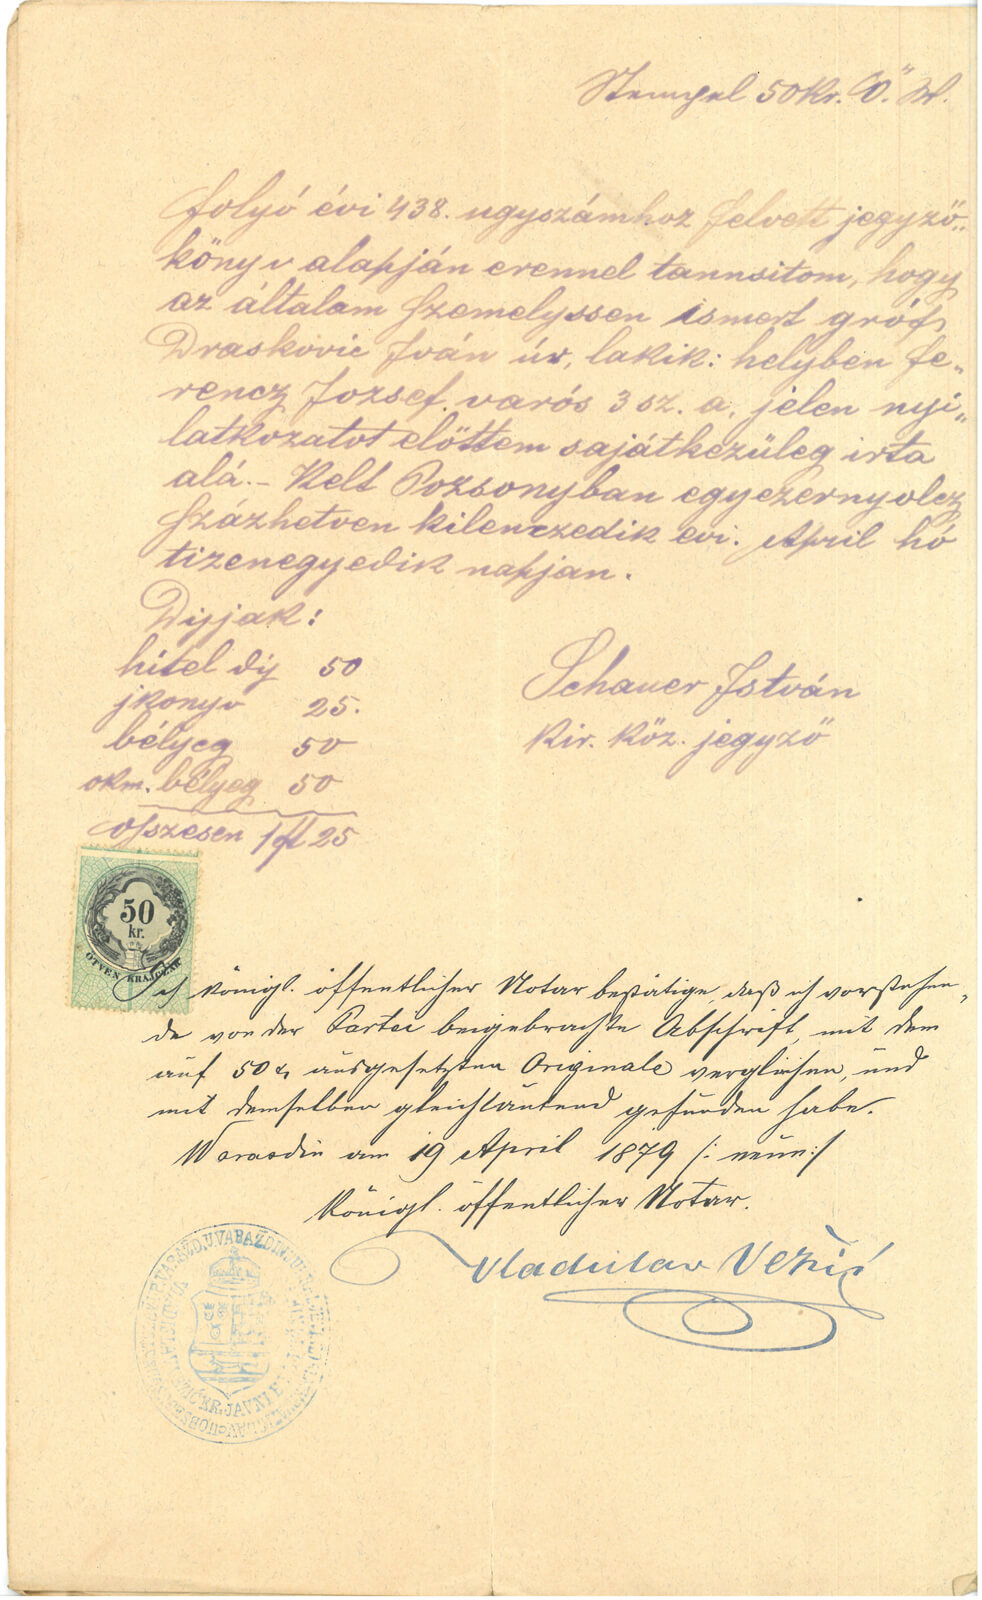 Stempel 50 kr. Ö. W.
folyó évi 438. ugyszámhoz felvett jegyző„
könyv alapján erennel tannsitom, hogy
az általam személyssen ismert gróf
Draskovic Iván úr, lakik: helyben Fe„
rencz Jozsef. varós 3 sz. a. jelen nyi„
latkozatot előttem sajátkezüleg irta
alá. – Kelt Pozsonyban egyezernyolcz
százhetven kilenczedik evi. April hó
tizenegyedik napjan.
Dijjak:
hitel dij 50
jkonyv 25.
bélyeg 50
okm. bélyeg 50
összesen 1 ft 25
Schauer István
kir. köz. jegyző
50
kr.
ÖTVEN KRAJCZÁR
Ich königl. öffentlicher Notar bestätige, daß ich vorstehen„
de von der Partei beigebrachte Abschrift, mit dem
auf 50 x ausgesetzten Originale verglichen, und
mit demselben gleichlautend gefunden habe.
Warasdin am 19 April 1879 /: neun :/
Königl. öffentlicher Notar.
Vladislav Vežić